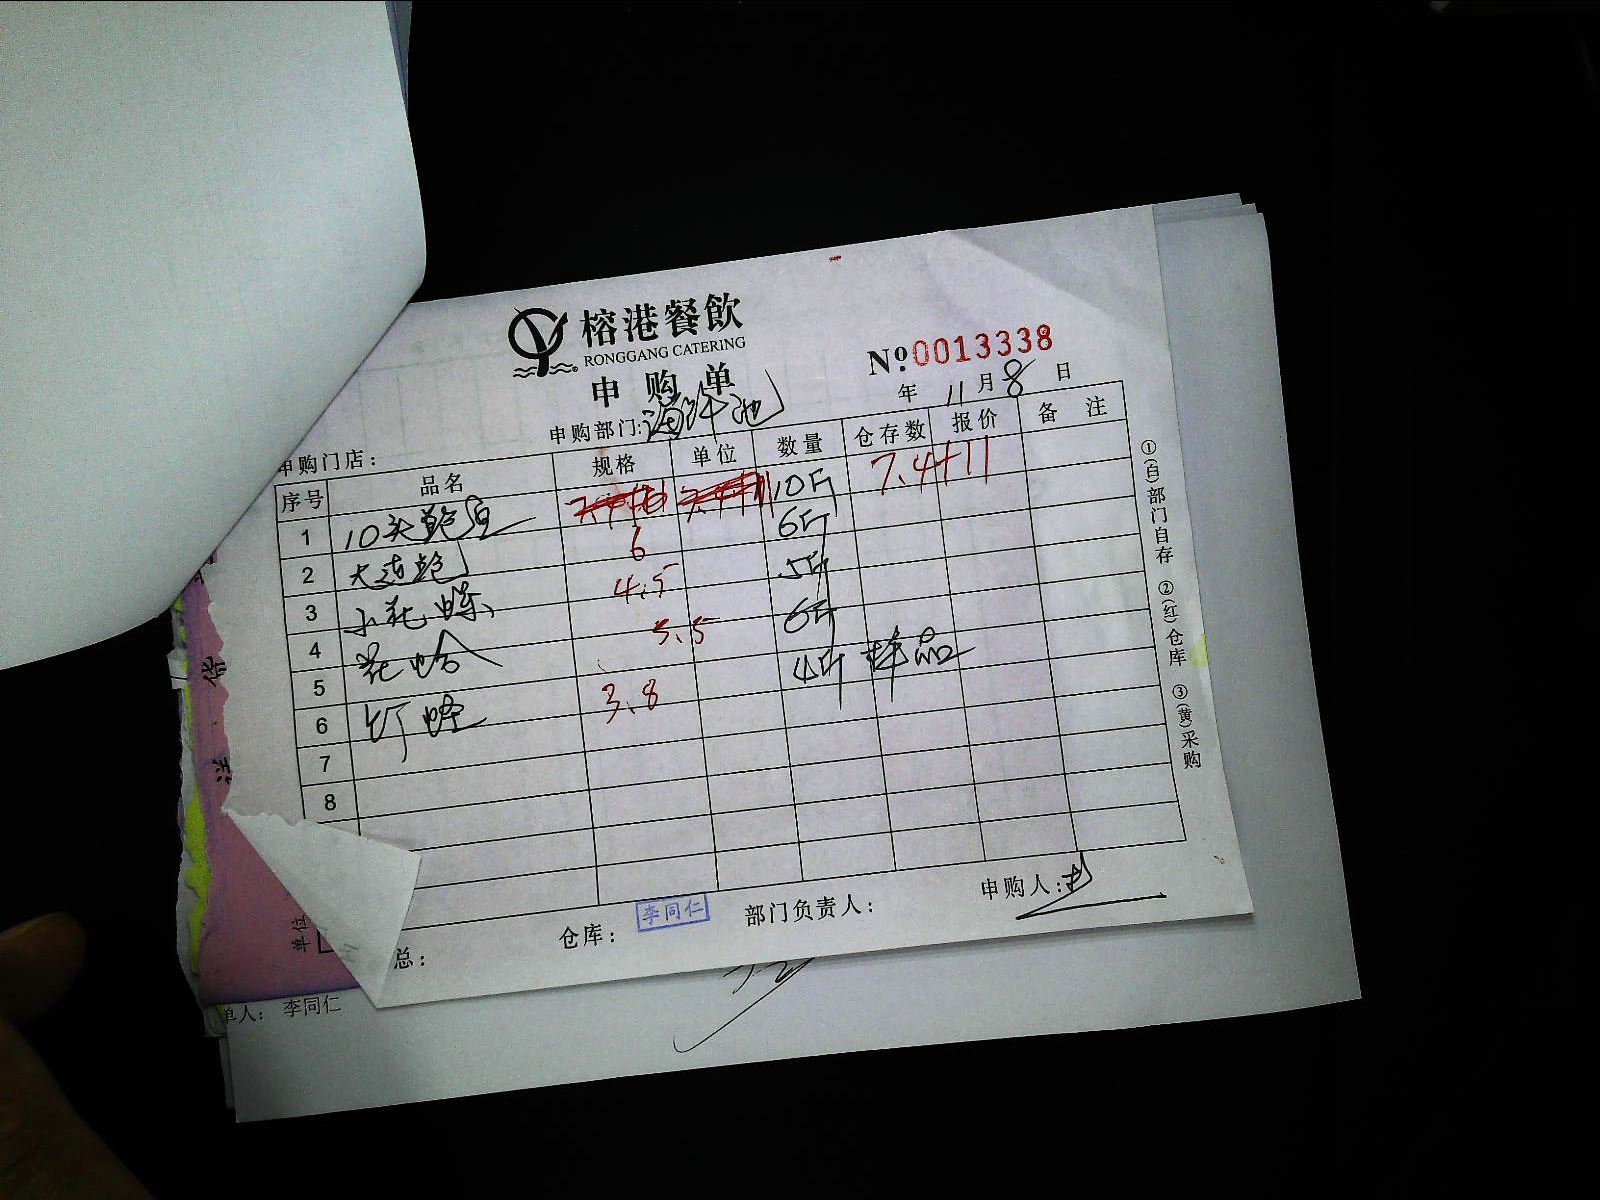 榕港餐飲
RONGGANG CATERING
申购单
№ 0013338
申购门店： 申购部门:海鲜池 年 11月 8日
序号 品名 规格 单位 数量 仓存数 报价 备注
1 10头鲍鱼 10斤 7.4+11
2 大连鲍 6 6斤
3 小花 4.5 5斤
4 花蛤 5.5 6斤
5 4斤 样品
6 3.8
7
8
总： 仓库： 李同仁 部门负责人： 申购人：
①(白)部门自存 ②(红)仓库 ③(黄)采购
单人： 李同仁
单位